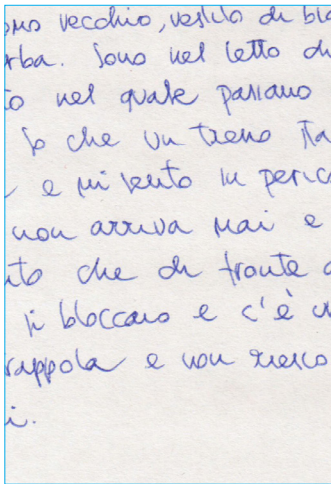 omo vecchio, vestito di bia
rba. Sono nel letto di
o nel quale passano
So che un treno sta
e mi sento in peric
non arriva mai e
nto che di fronte a
si bloccano e c'è u
rappola e non riesco
i.